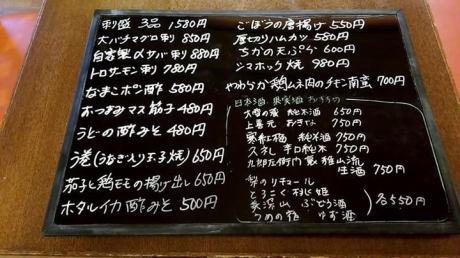 刺盛 3品 1580円
大バチマグロ刺 850円
自家製〆サバ刺 880円
トロサーモン刺 780円
なまこポン酢 580円
おつまみマス筋子 480円
うどの酢みそ 480円
う巻(うなぎ入り玉子焼) 650円
茄子と鶏モモの揚げ出し 650円
ホタルイカ酢みそ 500円
ごぼうの唐揚げ 550円
厚切りハムカツ 580円
ちかの天ぷら 600円
シマホッケ焼 980円
やわらか鶏ムネ肉のチキン南蛮 700円
日本酒、果実酒 おすすめ
純米酒 650円
上喜元 おきな 750円
寒紅梅 純米酒 750円
久礼 辛口純米 750円
九郎左衛門 裏 雅山流
生酒 750円
梨のリキュール
とろこく 桃姫
ぶどう酒
うめの宿 ゆず酒
各550円